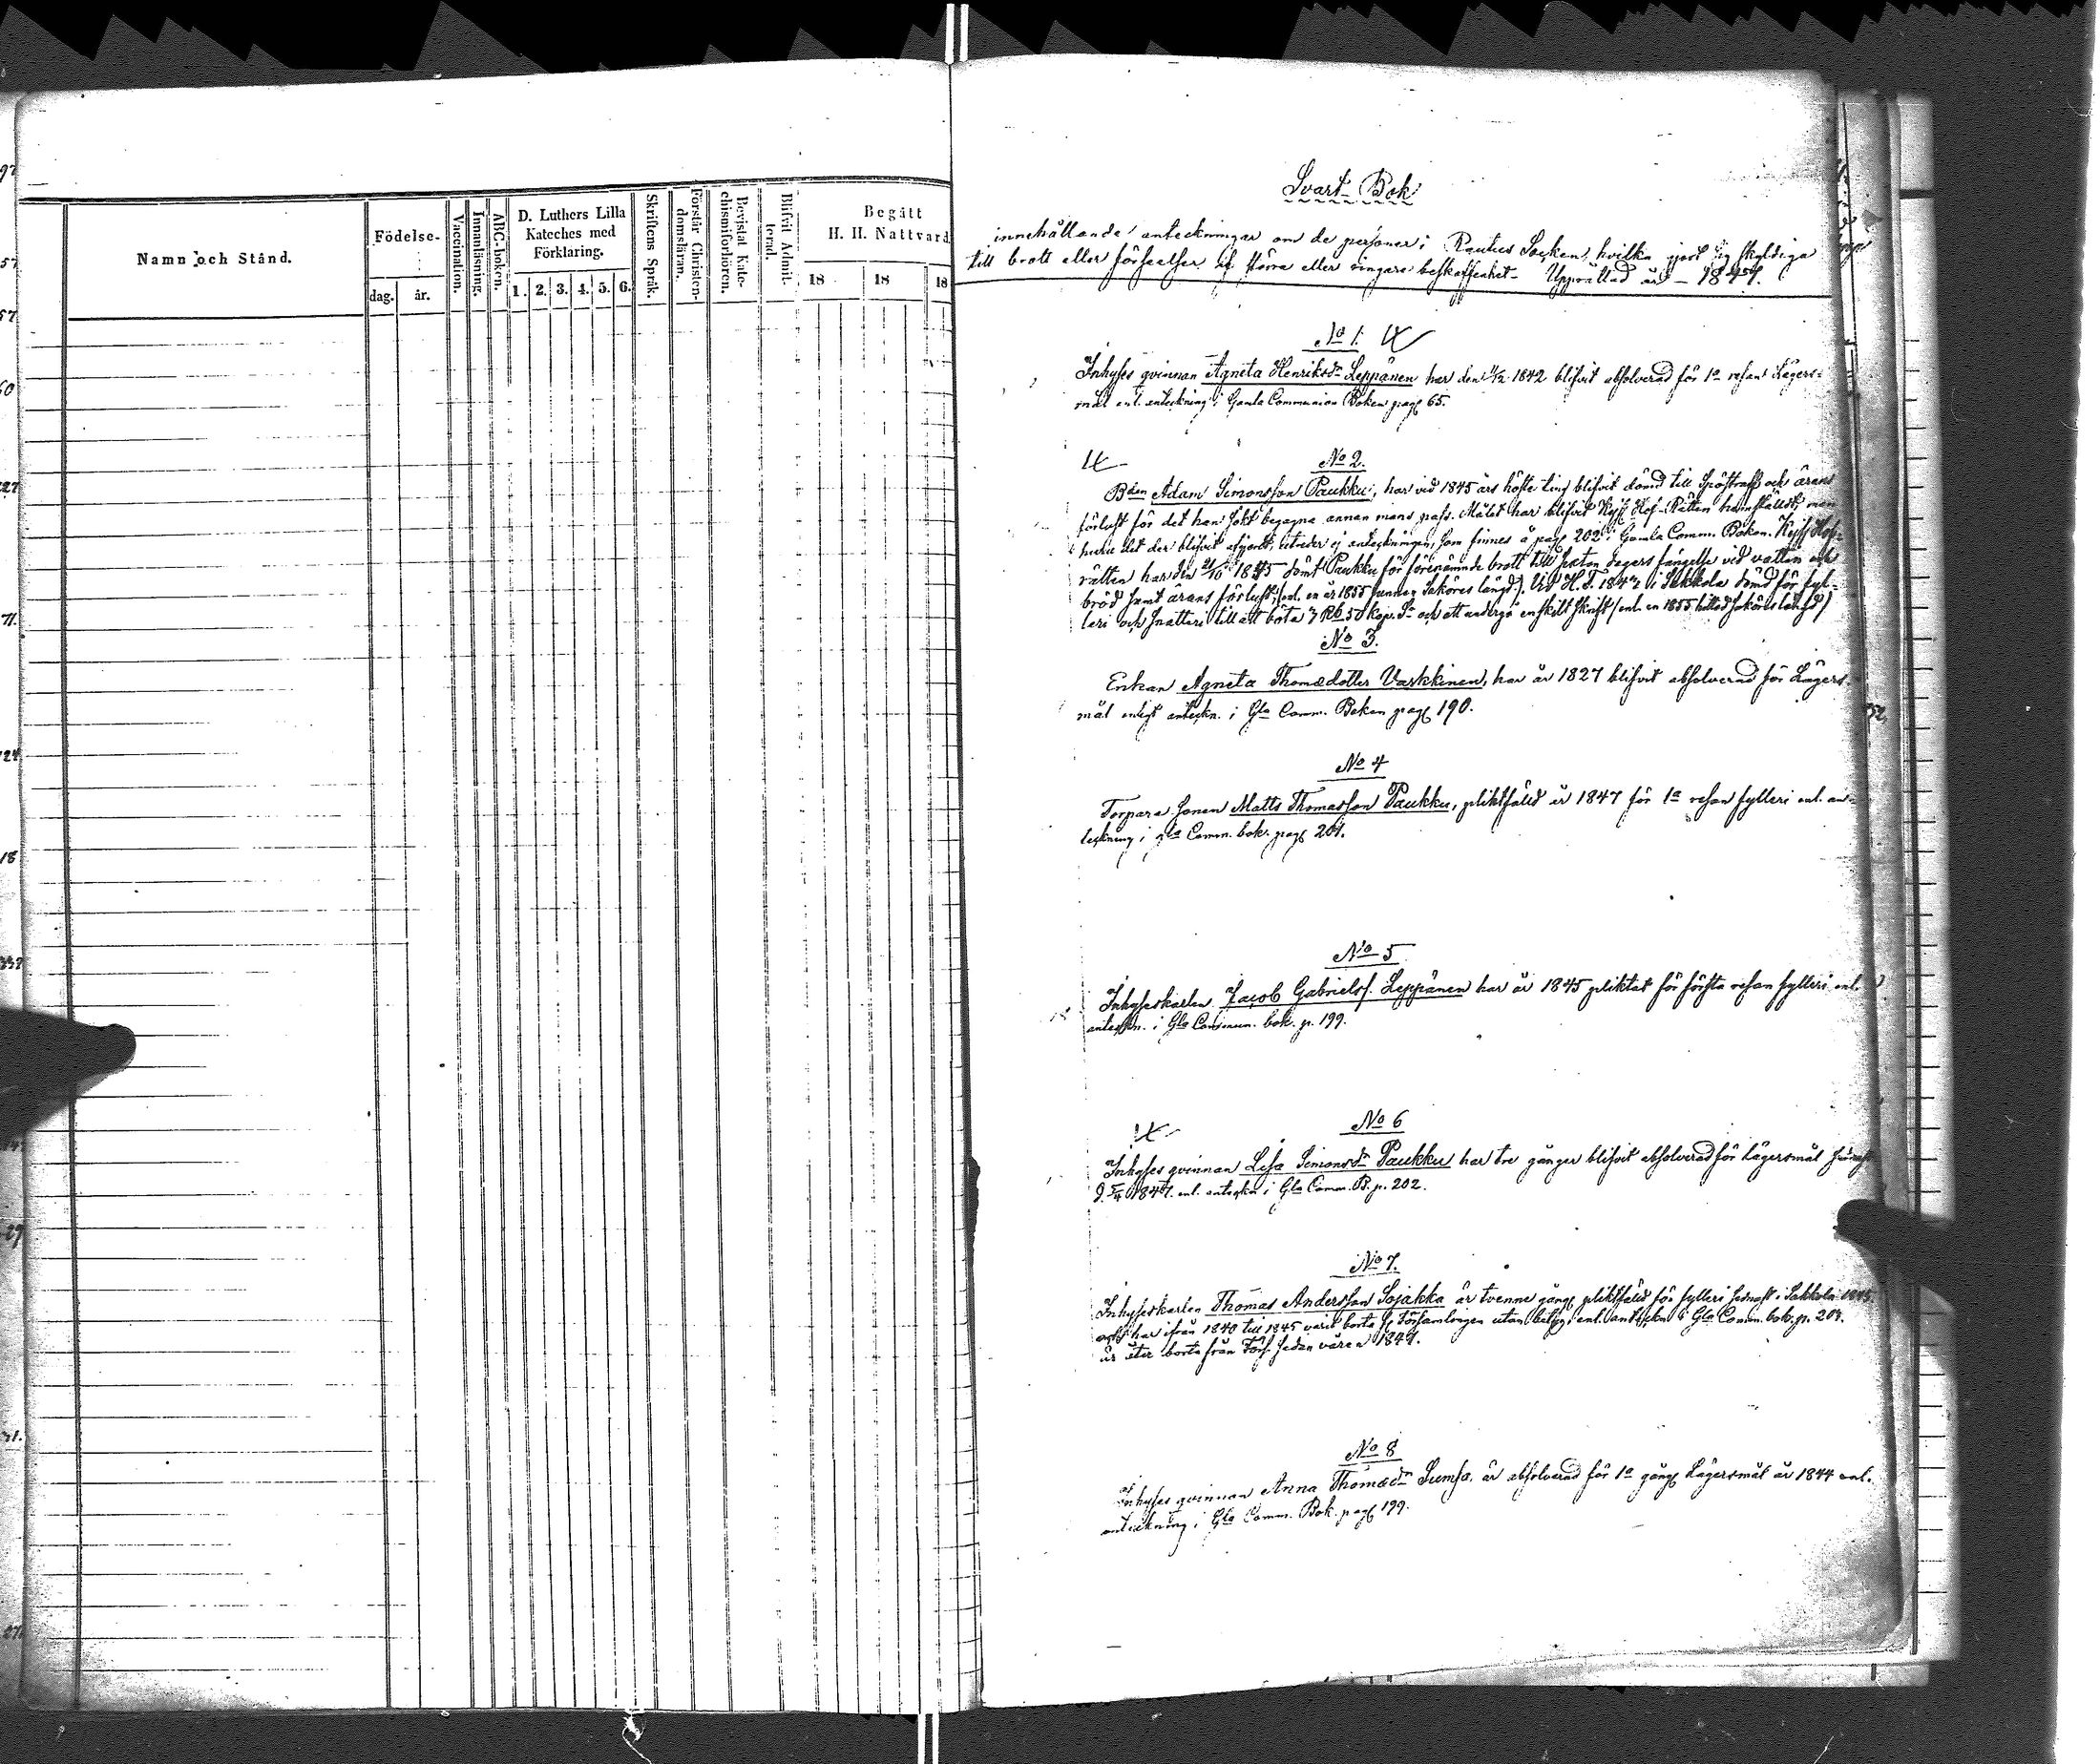 Namn och Stånd.
Födelse-
dag.
år.
Vaccination.
Innanläsning.
ABC-boken.
D. Luthers Lilla
Kateches med
Förklaring.
1. 2. 3. 4. 5. 6.
Skriftens Språk.
Förstår Christen-
domsläran.
Bevistat Kate-
chismiförhören.
Blifvit Admit-
terad.
Begått
H. H. Nattvard
18 18 18
Svart-Bok
innehållande anteckningar om de personer i Rautus Socken, hvilka gjort sig skyldiga
till brott eller förseelser af större eller ringare beskaffenhet. Upprättad år 1847.
No 1.
Inhyses qvinnan Agneta Henriksdr Leppänen har den 1842 blifvit absolverad för 1a resan Lägers-
mål enl. anteckning i Gamla Communion Boken pag 65.
No 2.
Bden Adam Simonsson Paukku, har vid 1845 års höste ting blifvit dömd till spöstraff och ärans
förlust för det han sökt begagna annan mans pass. Målet har blifvit Kejs Hof-Rätten hemställdt, men
huru det der blifvit afgjordt, utreder ej anteckningen, som finnes å pag 202 i Gamla Comm. Boken. Kejs Hof-
rätten har den 21/10 1845 dömt Paukku för förenämnde brott till sexton dagars fängelse vid vatten och
bröd samt ärans förlust, (enl. en år 1855 funnen Saköres längd). Vid H. T. 1847 i Sakkola dömd för fyl-
leri och snatteri till att böta 7 Rb 50 kop. Sr och att undergå enskilt skrift (enl. en 1855 hittad saköreslängd)
No 3.
Enkan Agneta Thomædotter Vaskkinen, har år 1827 blifvit absolverad för Lägers-
mål enligt anteckn. i Gla Comm. Boken pag 190.
No 4
Torpare sonen Matts Thomasson Paukku, pliktfäld år 1847 för 1a resan fylleri enl. an-
teckning i gla Comm. bok. pag 201.
No 5
Inhyseskarlen Jacob Gabrielss. Leppänen har år 1845 pliktat för första resan fylleri enl.
anteckn. i Gla Commun. bok. p. 199.
No 6
Inhyses qvinnan Lisa Simonsdr Paukku har tre gånger blifvit absolverad för Lägersmål
1847. enl. anteckn i Gla Comm. B. p. 202.
No 7.
Inhyseskarlen Thomas Andersson Sojakka är tvenne gång pliktfäld för fylleri sednast i Sakkola 1845
och har ifrån 1840 till 1845 varit borta fr Församlingen utan betyg, enl. anteckn i Gla Comm. bok. p. 201.
är åter borta från Förs. sedan våren 1847.
No 8
Inhyses qvinnan Anna Thomædr Sumsa. är absolverad för 1a gång Lägersmål år 1844 enl.
anteckning i Gla Comm. Bok. pag 199.